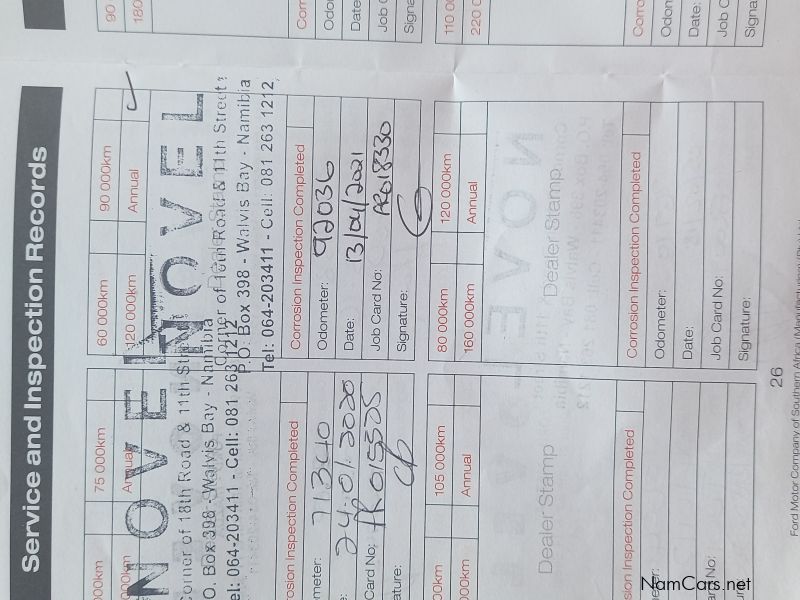 Service and Inspection Records
000km
75 000km
000km
Annual
NOVEL
Corner of 18th Road & 11th St
P.O. Box 398 - Walvis Bay - Namibia
Tel: 064-203411 - Cell: 081 263 1212
Corrosion Inspection Completed
meter: 71340
24.01.2020
Card No: AR015325
ature:
60 000km
90 000km
120 000km
Annual
NOVEL
Corner of 18th Road & 11th Street
P.O. Box 398 - Walvis Bay - Namibia
Tel: 064-203411 - Cell: 081 263 1212
Corrosion Inspection Completed
Odometer: 92036
Date: 13/04/2021
Job Card No: AR018330
Signature:
90
180
Corr
Odo
Date
Job C
Signa
000km
105 000km
000km
Annual
Dealer Stamp
sion Inspection Completed
meter:
ard No:
ture:
80 000km
120 000km
160 000km
Annual
Dealer Stamp
Corrosion Inspection Completed
Odometer:
Date:
Job Card No:
Signature:
110 0
220 0
Corro
Odom
Date:
Job C
Signa
26
Ford Motor Company of Southern Africa (Manufacturing)
NamCars.net